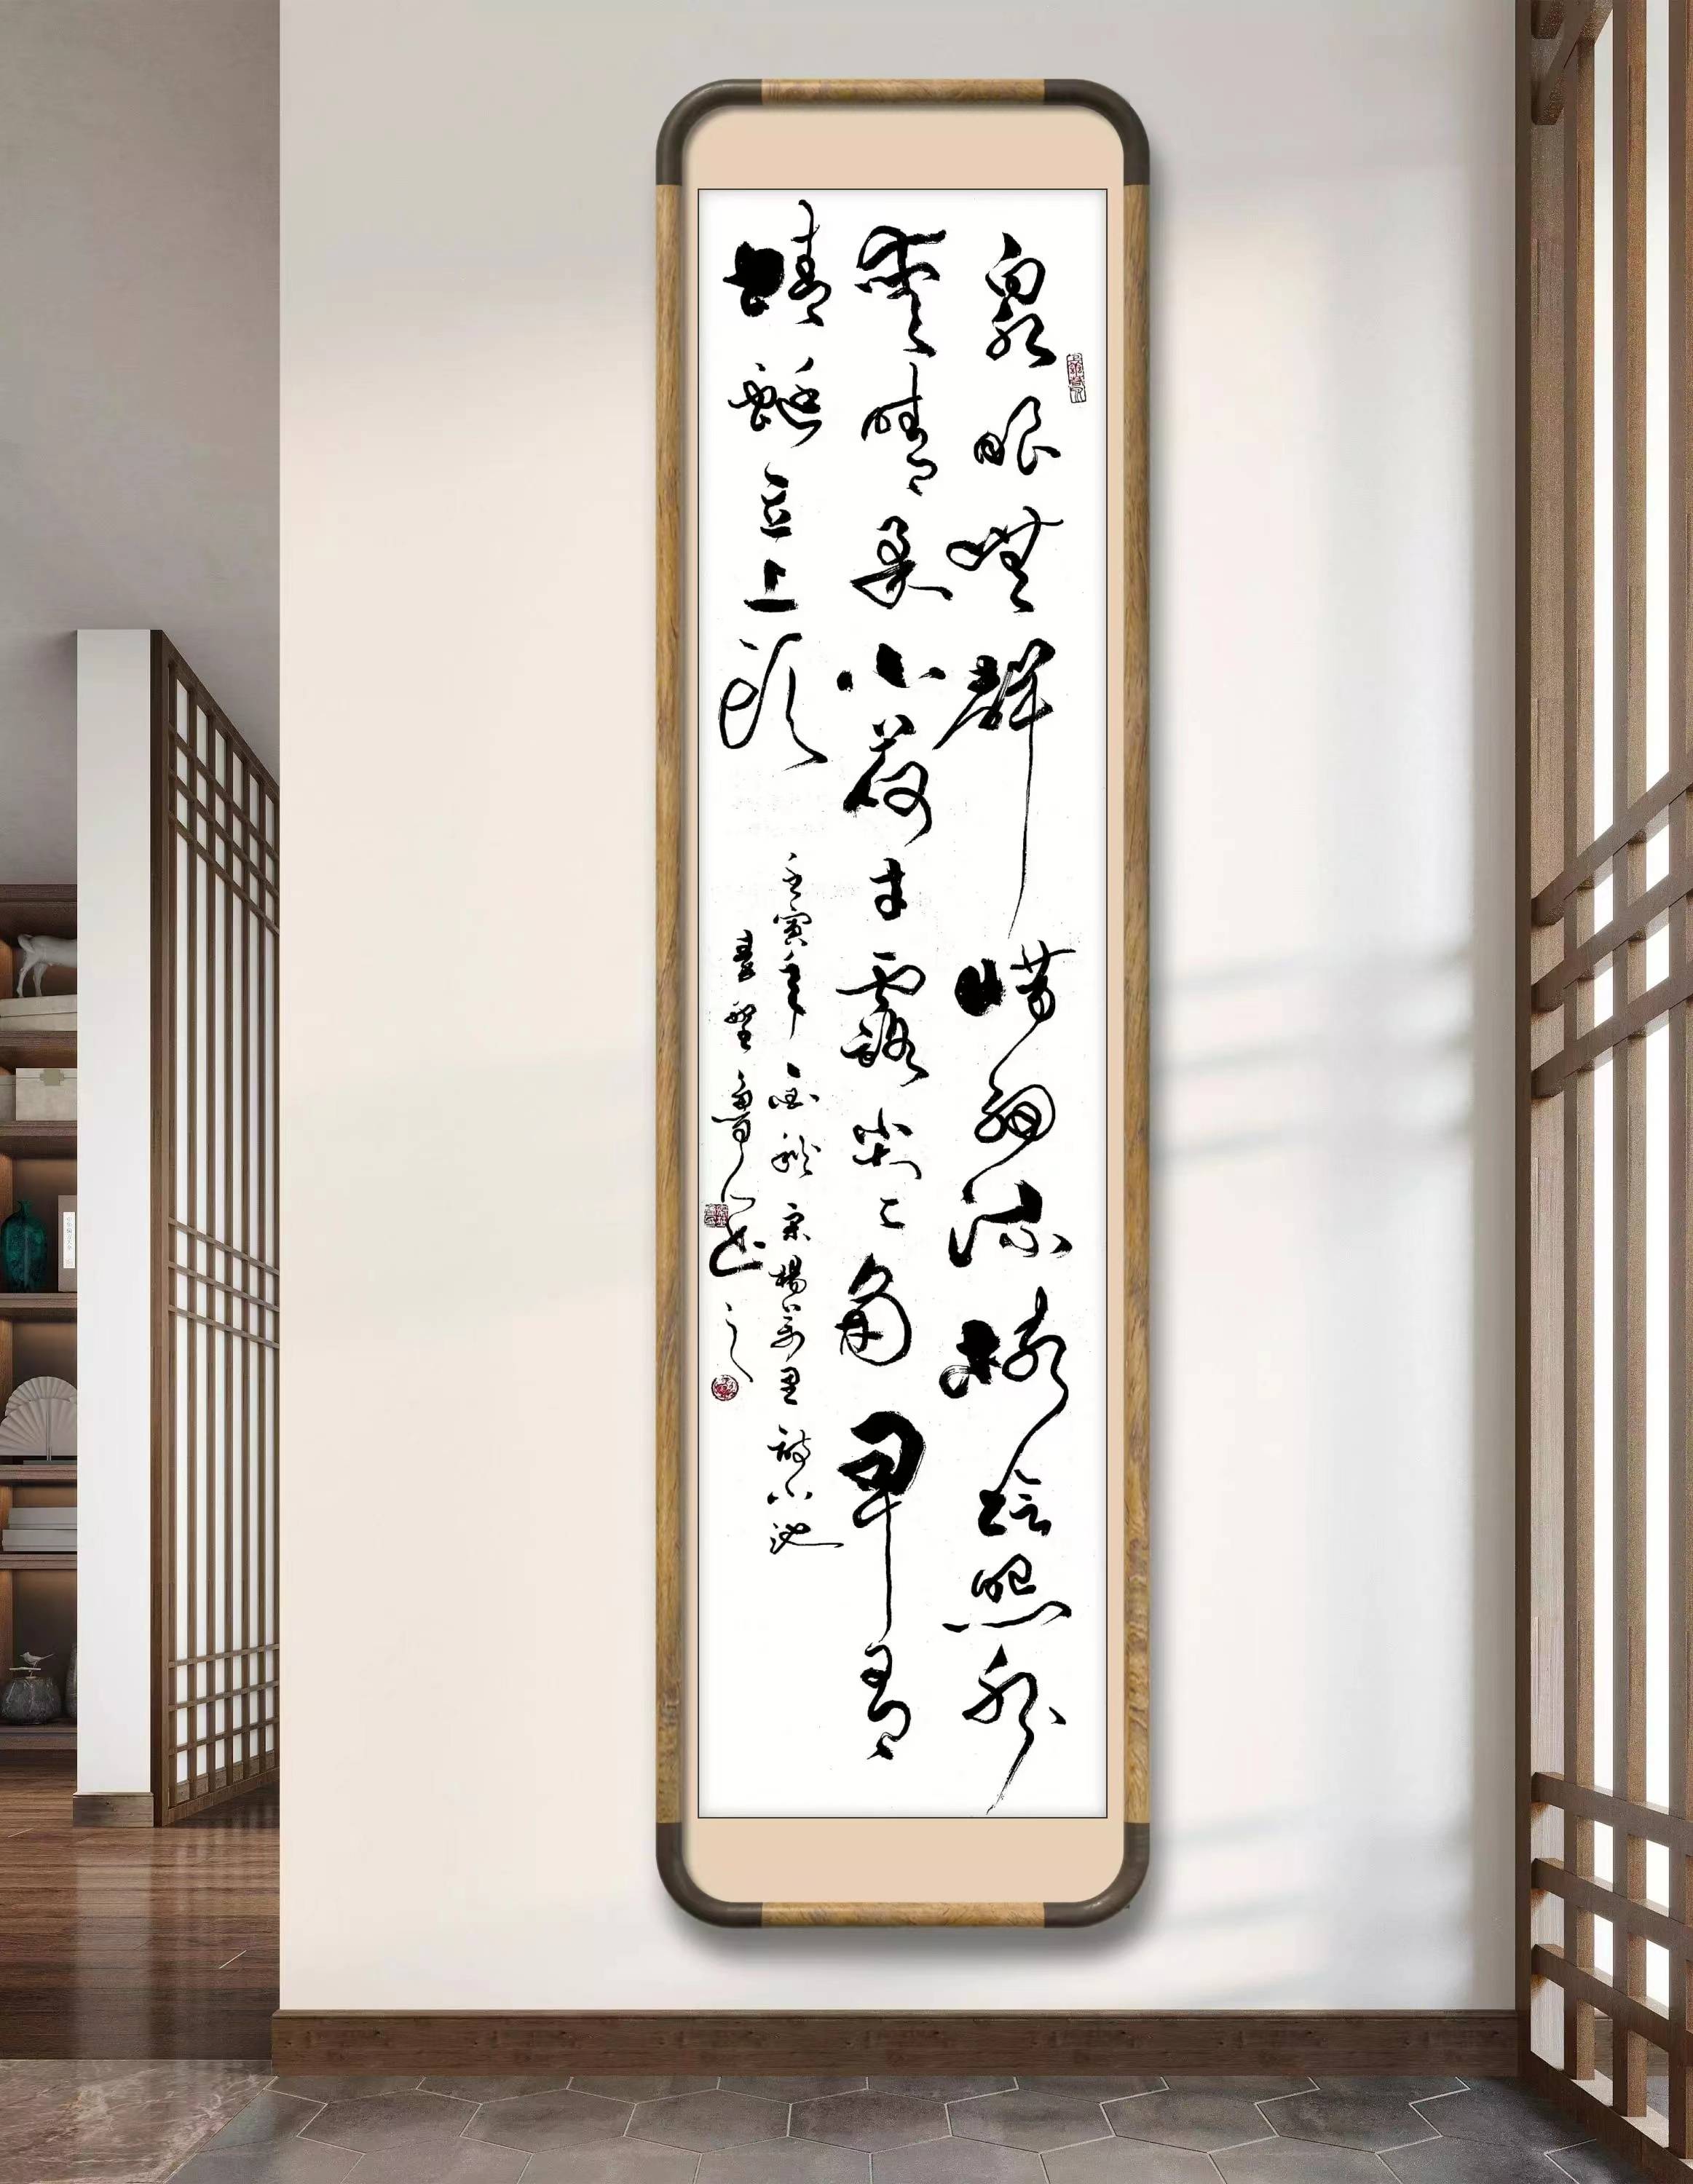 泉眼無聲惜細流樹陰照水
愛晴柔小荷才露尖々角早有
蜻蜓立上頭
壬寅年秋宋楊萬里詩小池